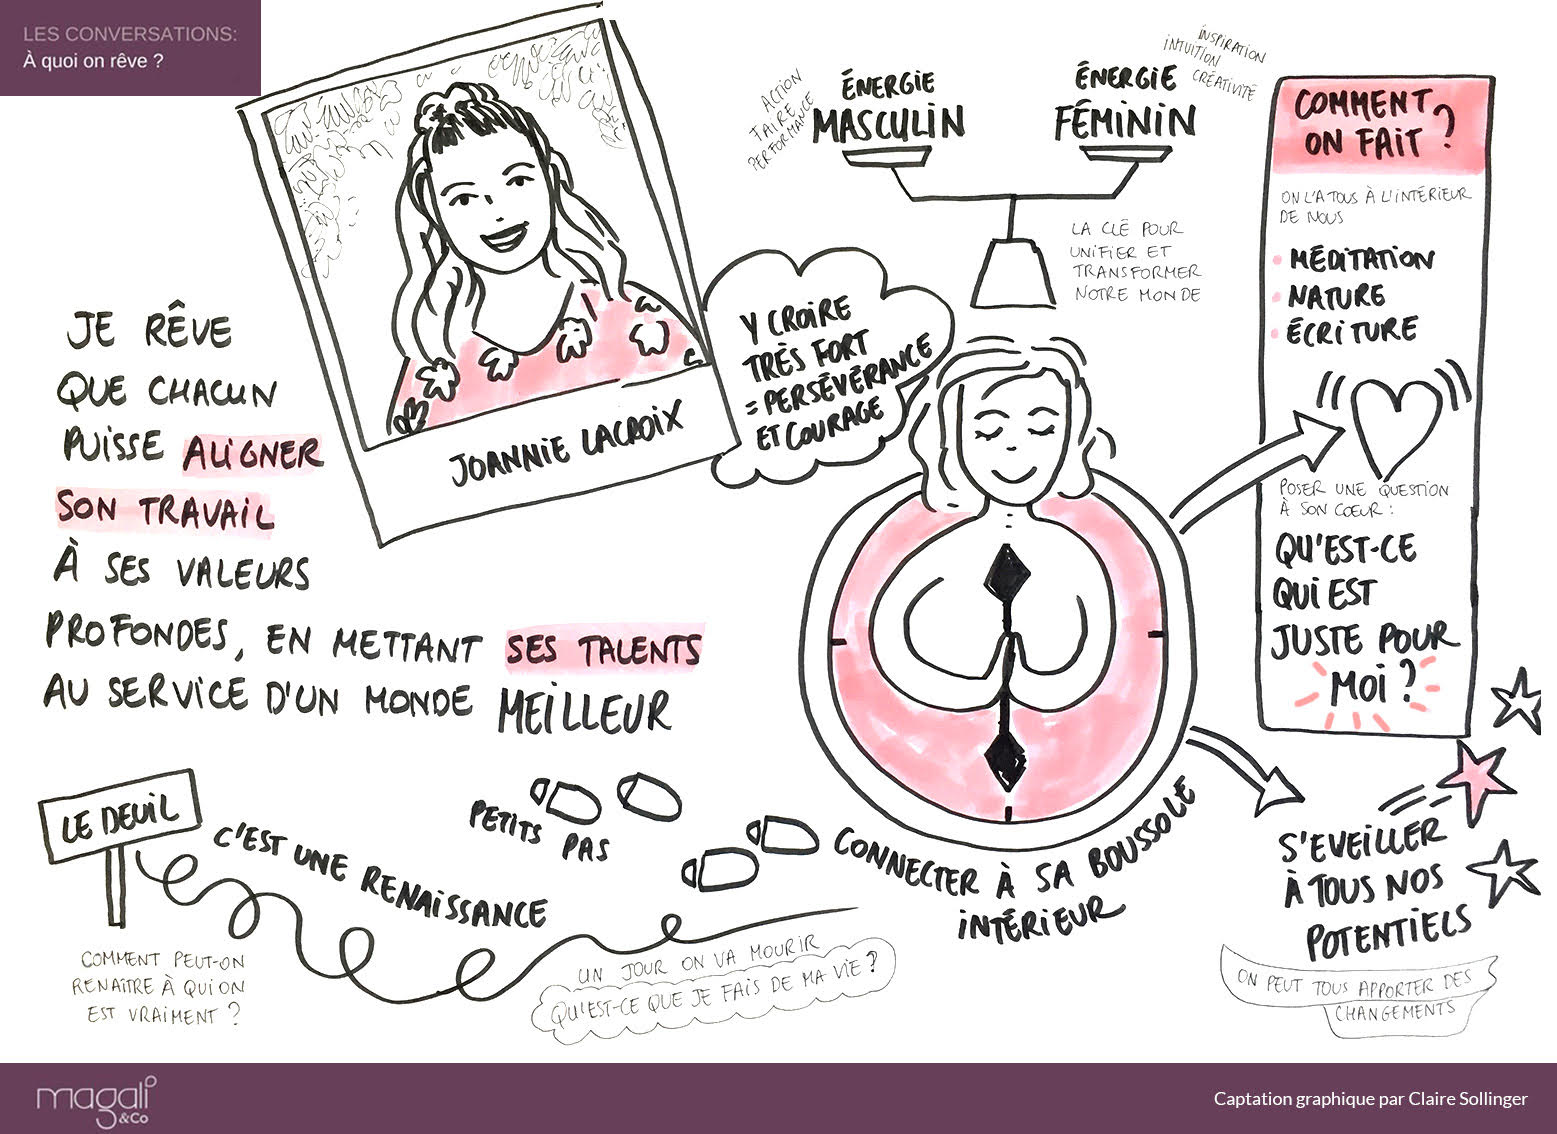 LES CONVERSATIONS:
À quoi on rêve ?
JOANNIE LACROIX
JE RÊVE
QUE CHACUN
PUISSE ALIGNER
SON TRAVAIL
À SES VALEURS
PROFONDES, EN METTANT SES TALENTS
AU SERVICE D'UN MONDE MEILLEUR
Y CROIRE
TRÈS FORT
= PERSÉVÉRANCE
ET COURAGE
ACTION
FAIRE
PERFORMANCE
ÉNERGIE
MASCULIN
ÉNERGIE
FÉMININ
INSPIRATION
INTUITION
CRÉATIVITÉ
LA CLÉ POUR
UNIFIER ET
TRANSFORMER
NOTRE MONDE
COMMENT
ON FAIT ?
ON L'A TOUS À L'INTÉRIEUR
DE NOUS
• MÉDITATION
• NATURE
• ÉCRITURE
POSER UNE QUESTION
À SON CŒUR :
QU'EST-CE
QUI EST
JUSTE POUR
MOI ?
CONNECTER À SA BOUSSOLE
INTÉRIEUR
S'EVEILLER
À TOUS NOS
POTENTIELS
ON PEUT TOUS APPORTER DES
CHANGEMENTS
LE DEUIL
C'EST UNE RENAISSANCE
PETITS PAS
COMMENT PEUT-ON
RENAÎTRE À QUI ON
EST VRAIMENT ?
UN JOUR ON VA MOURIR
QU'EST-CE QUE JE FAIS DE MA VIE ?
magali
&Co
Captation graphique par Claire Sollinger